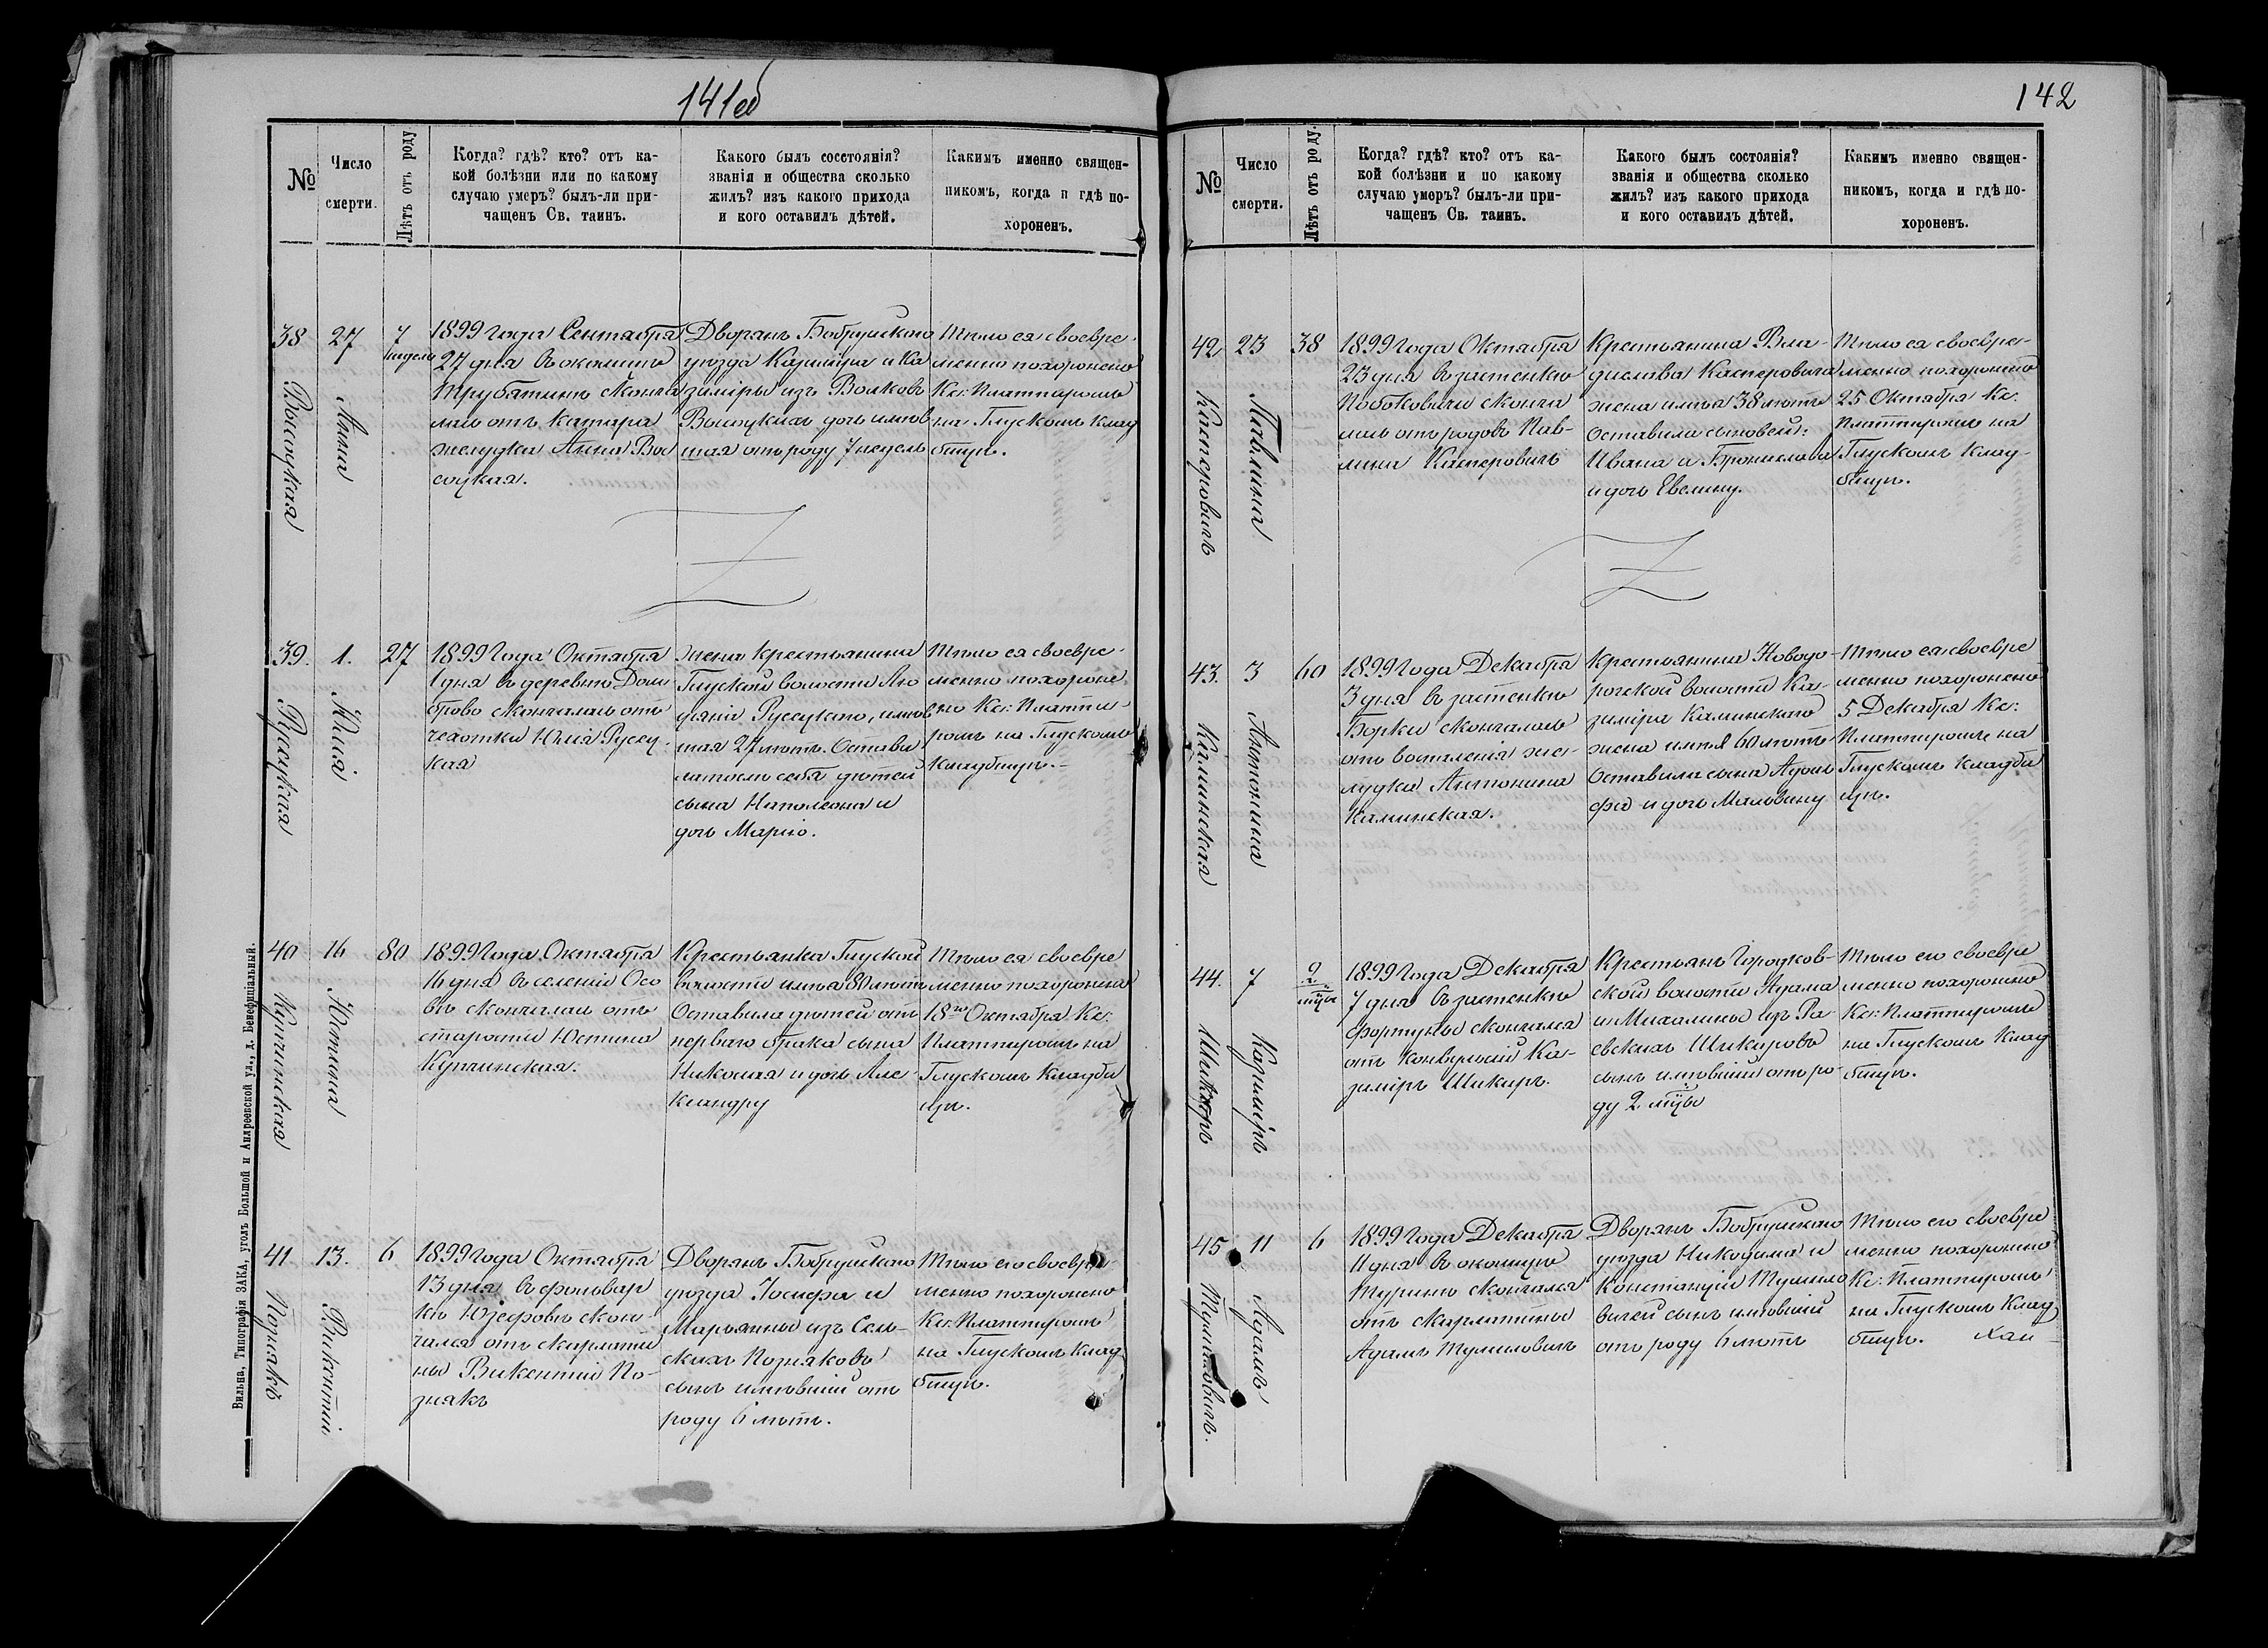 141об
№
Число
смерти.
Лѣтъ отъ роду
Когда? гдѣ? кто? отъ ка-
кой болѣзни или по какому
случаю умеръ? былъ-ли при-
чащенъ Св. таинъ.
Какого былъ состоянія?
званія и общества сколько
жилъ? изъ какого прихода
и кого оставилъ дѣтей.
Какимъ именно священ-
никомъ, когда и гдѣ по-
хороненъ.
38
Высоцкая
27
Анна
7
недѣль
1899 года Сентября
27 дня въ околицѣ
Трубятинѣ сконча
лась отъ катара
желудка Анна Вы
соцкая.
Дворянъ Бобруйскаго
уѣзда Казиміра и Ка
зиміры изъ Волковъ
Высоцкихъ дочь имѣв
шая отъ роду 7 недѣль
Тѣло ея своевре-
менно похоронено
Кс: Платпиромъ
на Глускомъ клад
бищѣ.
39.
Русецкая
1.
Юлія
27
1899 года Октября
1 дня въ деревнѣ Дом
брово скончалась отъ
чахотки Юлія Русец-
кая
жена крестьянина
Глуской волости Лю
ціянъ Русецкаго, имѣв
шая 27 лѣтъ. Остави
ла после себя дѣтей
сына Наполеона и
дочь Марію.
Тѣло ея своевре-
менно похороне
но Кс: Платпи-
ромъ на Глускомъ
кладбищѣ.-
40
Купчинская
16
Юстина
80
1899 Года Октября
16 дня въ селеніи Осо
въ скончалась отъ
старости Юстина
Купчинская.
Крестьянка Глуской
волости имѣя 80 лѣтъ
Оставила дѣтей отъ
перваго брака сына
Николая и дочь Але-
ксандру
Тѣло ея своевре
менно похоронено
18го Октября Кс:
Платпиромъ на
Глускомъ кладби
щѣ.
41
Познякъ
13.
Викентій
6
1899 года Октября
13 дня въ фольвар
кѣ Юзефовѣ скон-
чался отъ скарлати
ны Викентій По-
знякъ
Дворянъ Бобруйскаго
уѣзда Іосифа и
Марьянны изъ Сель-
скихъ Позняковъ
сынъ имѣвшій отъ
роду 6 лѣтъ.
Тѣло его своевре-
менно похоронено
Кс: Платпиромъ
на Глускомъ клад
бищѣ.
Вильна, Типографія ЗАКА, уголъ Большой и Андреевской ул., д. Бенефиціальный.
142
№
Число
смерти.
Лѣтъ отъ роду.
Когда? гдѣ? кто? отъ ка-
кой болѣзни и по какому
случаю умеръ? былъ-ли при-
чащенъ Св. таинъ.
Какого былъ состоянія?
званія и общества сколько
жилъ? изъ какого прихода
и кого оставилъ дѣтей.
Какимъ именно священ-
никомъ, когда и гдѣ по-
хороненъ.
42
Касперовичъ
23
Павлина
38
1899 года Октября
23 дня въ застенкѣ
Побоковичи сконча
лась отъ родовъ Пав-
лина Касперовичъ
Крестьянина Вла-
дислава Касперовича
жена имѣя 38 лѣтъ
Оставила сыновей:
Ивана и Бронислава
и дочь Евелину.
Тѣло ея своевре-
менно похоронено
25 Октября Кс:
Платпиромъ на
Глускомъ клад-
бищѣ.
43.
Каминская
3
Антонина
60
1899 года Декабря
3 дня въ застенкѣ
Борки скончалась
отъ воспаленія же-
лудка Антонина
Каминская.
Крестьянина Новодо-
рожской волости Ка-
зиміра Каминскаго
жена имѣя 60 лѣтъ
Оставила сына Адоль
фа и дочь Мальвину
Тѣло ея своевре
менно похоронено
5 Декабря Кс:
Платпиромъ на
Глускомъ кладби
щѣ.
44.
Шикиръ
7
Казиміръ
2
мцы
1899 года Декабря
7 дня въ застенкѣ
Фортуны скончался
отъ конвульсій Ка-
зиміръ Шикиръ.
Крестьянъ Городков-
ской волости Адама
и Михалины изъ Ра-
евскихъ Шикировъ
сынъ имѣвшій отъ ро-
ду 2 мцы
Тѣло его своевре
менно похоронено
Кс: Платпиромъ
на Глускомъ клад
бищѣ.
45
Тумиловичъ.
11
Адамъ
6
1899 года Декабря
11 дня въ околицѣ
Турино скончался
отъ скарлатины
Адамъ Тумиловичъ
Дворянъ Бобруйскаго
уѣзда Никодима и
Констанціи Тумило
вичей сынъ имѣвшій
отъ роду 6 лѣтъ
Тѣло его своевре
менно похоронено
Кс: Платпиромъ
на Глускомъ клад
бищѣ.